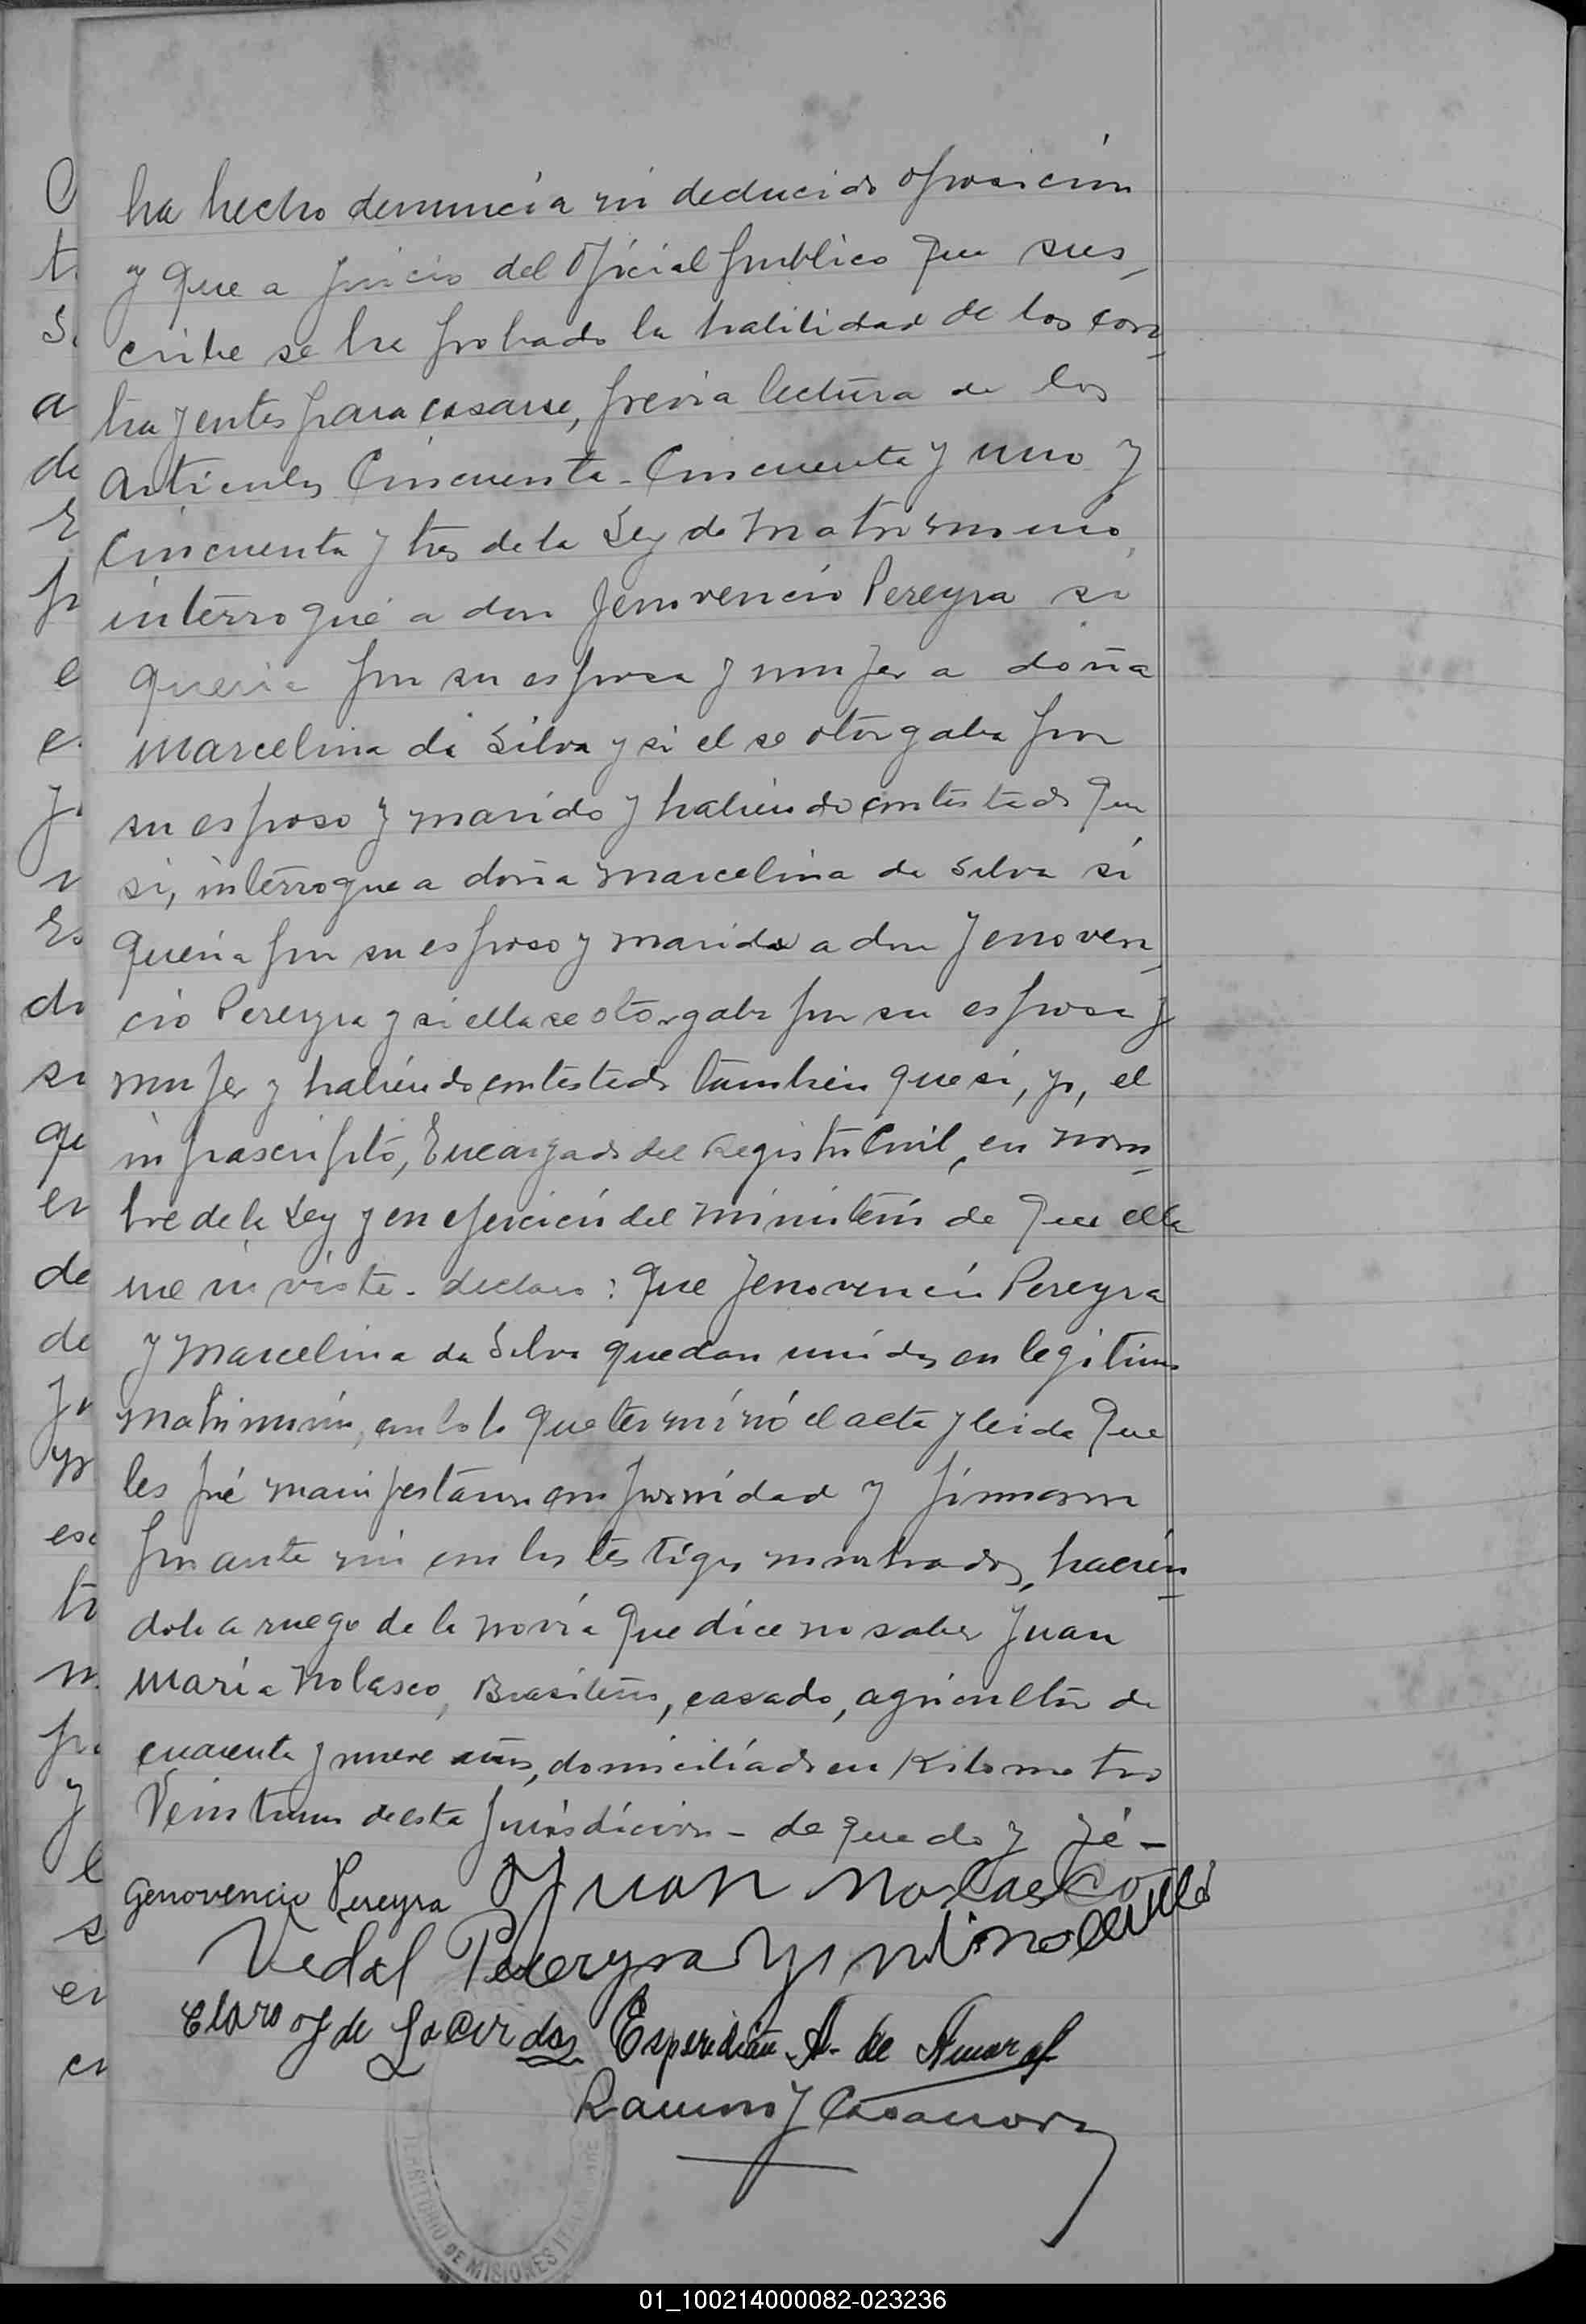 ha hecho denuncia ni deducido oposición
y que a juicio del Oficial publico que sus-
cribe se ha probado la habilidad de los con-
trayentes para casarse, previa lectura de los
articulos Cincuenta - Cincuenta y uno y
Cincuenta y tres de la Ley de Matrimonio,
interrogué a don Jenovencio Pereyra si
queria por su esposa y mujer a doña
Marcelina da Silva y si el se otorgaba por
su esposo y marido y habiendo contestado que
si, interrogue a doña Marcelina da Silva si
queria por su esposo y marido a don Jenoven-
cio Pereyra y si ella se otorgaba por su esposa y
mujer y habiendo contestado tambien que si, yo, el
infrascripto, Encargado del Registro Civil, en nom-
bre de la Ley y en ejercicio del ministerio de que ella
me inviste - declaro: que Jenovencio Pereyra
y Marcelina da Silva quedan unidos en legitimo
matrimonio, con lo que terminó el acta y leida que
les fué manifestaron conformidad y firmaron
por ante mi con los testigos nombrados, hacien-
dolo a ruego de la novia que dice no saber Juan
Maria Nolasco, Brasilero, casado, agricultor de
cuarenta y nueve años, domiciliado en Kilometro
Veintiuno de esta jurisdicion - de que doy fé -
Genovencio Pereyra Juan Nolasco
Vedal Pereyra
Claro J de Lacerda Esperidião A. de Amaral
Ramon J Casanova
TERRITORIO DE MISIONES
01_100214000082-023236